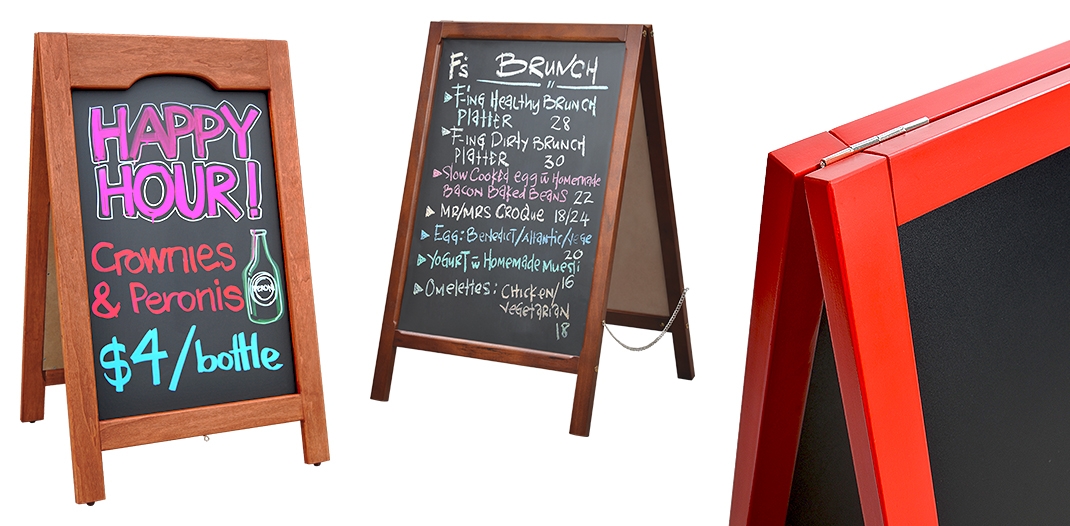 HAPPY
HOUR!
Crownies
& Peronis
PERONI
$4/bottle
F's BRUNCH
F-ing Healthy BRUNCH
Platter 28
F-ing Dirty BRUNCH
Platter 30
Slow Cooked egg w Homemade
Bacon Baked Beans 22
MR/MRS CROQue 18/24
Egg: Benedict/Atlantic/vege
20
YOGURT w Homemade Muesli
16
Omelettes: Chicken/
Vegetarian
18